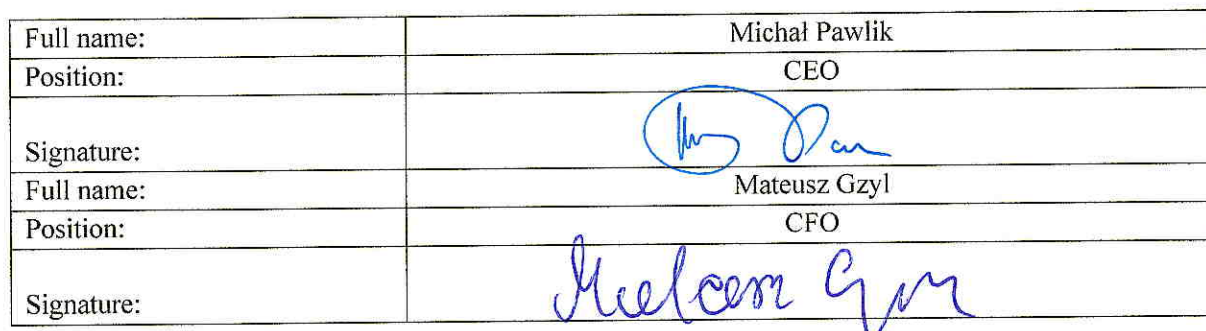 Full name: Michał Pawlik
Position: CEO
Signature:
Full name: Mateusz Gzyl
Position: CFO
Signature: